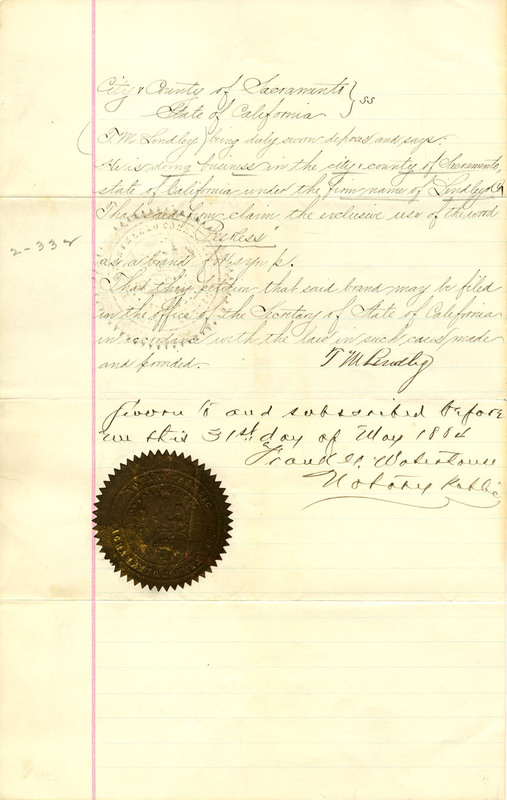 City & County of Sacramento } ss
State of California
T. M. Lindley } being duly sworn deposes and says.
He is doing business in the city & county of Sacramento,
state of California under the firm name of Lindley & Co
That said firm claim the exclusive use of the word
"Peerless"
as a brand for syrup.
That they petition that said brand may be filed
in the office of the Secretary of State of California
in accordance with the law in such cases made
and provided.
T M Lindley
2-332
Sworn to and subscribed before
me this 31st day of May 1884
Waterhouse
Notary Public